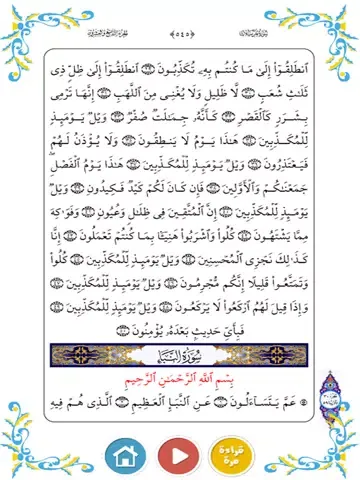 سُورَةُ المُرْسَلَاتِ ﴿٥٤٥﴾ الجُزءُ التَّاسِعُ وَالعِشْرُونَ
ٱنطَلِقُوٓا۟ إِلَىٰ مَا كُنتُم بِهِۦ تُكَذِّبُونَ ۝٢٩ ٱنطَلِقُوٓا۟ إِلَىٰ ظِلٍّۢ ذِى
ثَلَٰثِ شُعَبٍۢ ۝٣٠ لَّا ظَلِيلٍۢ وَلَا يُغْنِى مِنَ ٱللَّهَبِ ۝٣١ إِنَّهَا تَرْمِى
بِشَرَرٍۢ كَٱلْقَصْرِ ۝٣٢ كَأَنَّهُۥ جِمَٰلَتٌۭ صُفْرٌۭ ۝٣٣ وَيْلٌۭ يَوْمَئِذٍۢ
لِّلْمُكَذِّبِينَ ۝٣٤ هَٰذَا يَوْمُ لَا يَنطِقُونَ ۝٣٥ وَلَا يُؤْذَنُ لَهُمْ
فَيَعْتَذِرُونَ ۝٣٦ وَيْلٌۭ يَوْمَئِذٍۢ لِّلْمُكَذِّبِينَ ۝٣٧ هَٰذَا يَوْمُ ٱلْفَصْلِ ۖ
جَمَعْنَٰكُمْ وَٱلْأَوَّلِينَ ۝٣٨ فَإِن كَانَ لَكُمْ كَيْدٌۭ فَكِيدُونِ ۝٣٩ وَيْلٌۭ
يَوْمَئِذٍۢ لِّلْمُكَذِّبِينَ ۝٤٠ إِنَّ ٱلْمُتَّقِينَ فِى ظِلَٰلٍۢ وَعُيُونٍۢ ۝٤١ وَفَوَٰكِهَ
مِمَّا يَشْتَهُونَ ۝٤٢ كُلُوا۟ وَٱشْرَبُوا۟ هَنِيٓـًٔۢا بِمَا كُنتُمْ تَعْمَلُونَ ۝٤٣ إِنَّا
كَذَٰلِكَ نَجْزِى ٱلْمُحْسِنِينَ ۝٤٤ وَيْلٌۭ يَوْمَئِذٍۢ لِّلْمُكَذِّبِينَ ۝٤٥ كُلُوا۟
وَتَمَتَّعُوا۟ قَلِيلًا إِنَّكُم مُّجْرِمُونَ ۝٤٦ وَيْلٌۭ يَوْمَئِذٍۢ لِّلْمُكَذِّبِينَ ۝٤٧
وَإِذَا قِيلَ لَهُمُ ٱرْكَعُوا۟ لَا يَرْكَعُونَ ۝٤٨ وَيْلٌۭ يَوْمَئِذٍۢ لِّلْمُكَذِّبِينَ ۝٤٩
فَبِأَىِّ حَدِيثٍۭ بَعْدَهُۥ يُؤْمِنُونَ ۝٥٠
سُورَةُ النَّبَإِ
بِسْمِ ٱللَّهِ ٱلرَّحْمَٰنِ ٱلرَّحِيمِ
عَمَّ يَتَسَآءَلُونَ ۝١ عَنِ ٱلنَّبَإِ ٱلْعَظِيمِ ۝٢ ٱلَّذِى هُمْ فِيهِ
قراءة
مرة